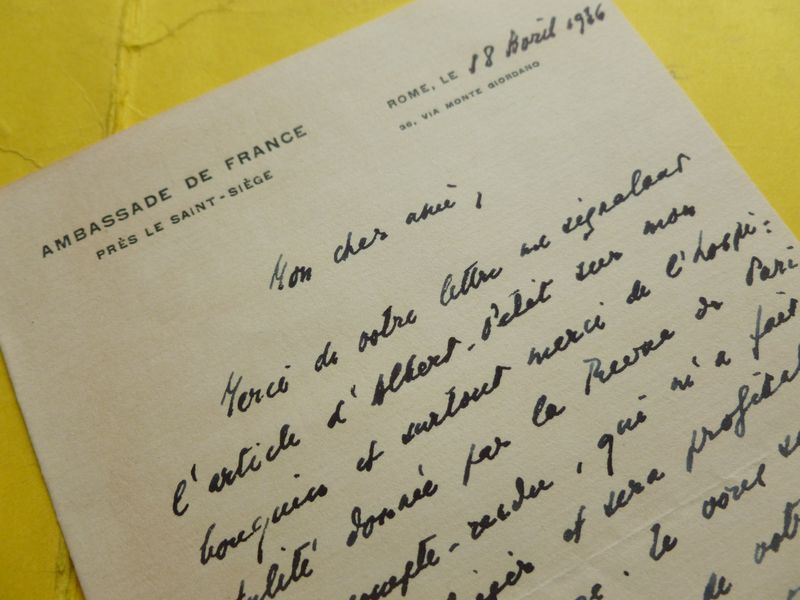 AMBASSADE DE FRANCE
PRÈS LE SAINT-SIÈGE
ROME, LE 18 Avril 1936
36, VIA MONTE GIORDANO
Mon cher ami,
Merci de votre lettre me signalant
l'article d'Albert-Petit sur mon
bouquin et surtout merci de l'hospi=
talité donnée par la Revue de Pari
compte-rendu, qui m'a fait
et sera profitab
. Je vous
de votr